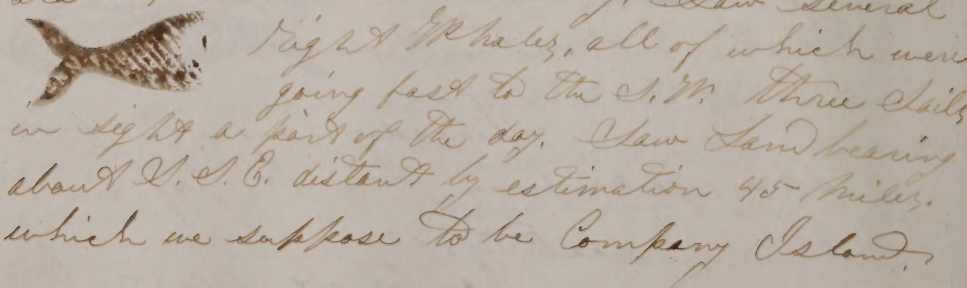 Saw several
Right Whales, all of which were
going fast to the S.W. three Sails
in sight a part of the day. Saw Land bearing
about S.S.E. distant by estimation 45 miles.
which we suppose to be Company Island.